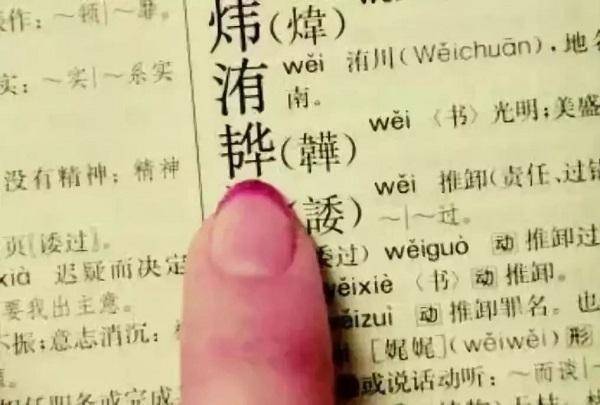 作：～顿|～靡。
实：～实|～系实
没有精神；精神
页〖诿过〗。
xià 迟疑而决定
要我出主意。
不振；意志消沉：
任职务或完成
炜（煒）
洧 wěi 洧川（Wěichuān），地名
南。
（韡） wěi 〈书〉光明；美盛
（諉） wěi 推卸（责任、过错
～|～过。
过） wěiguò 动 推卸过
wěixiè 〈书〉动 推卸。
wěizuì 动 推卸罪名。也
[娓娓]（wěiwěi）形
或说话动听：～而谈|